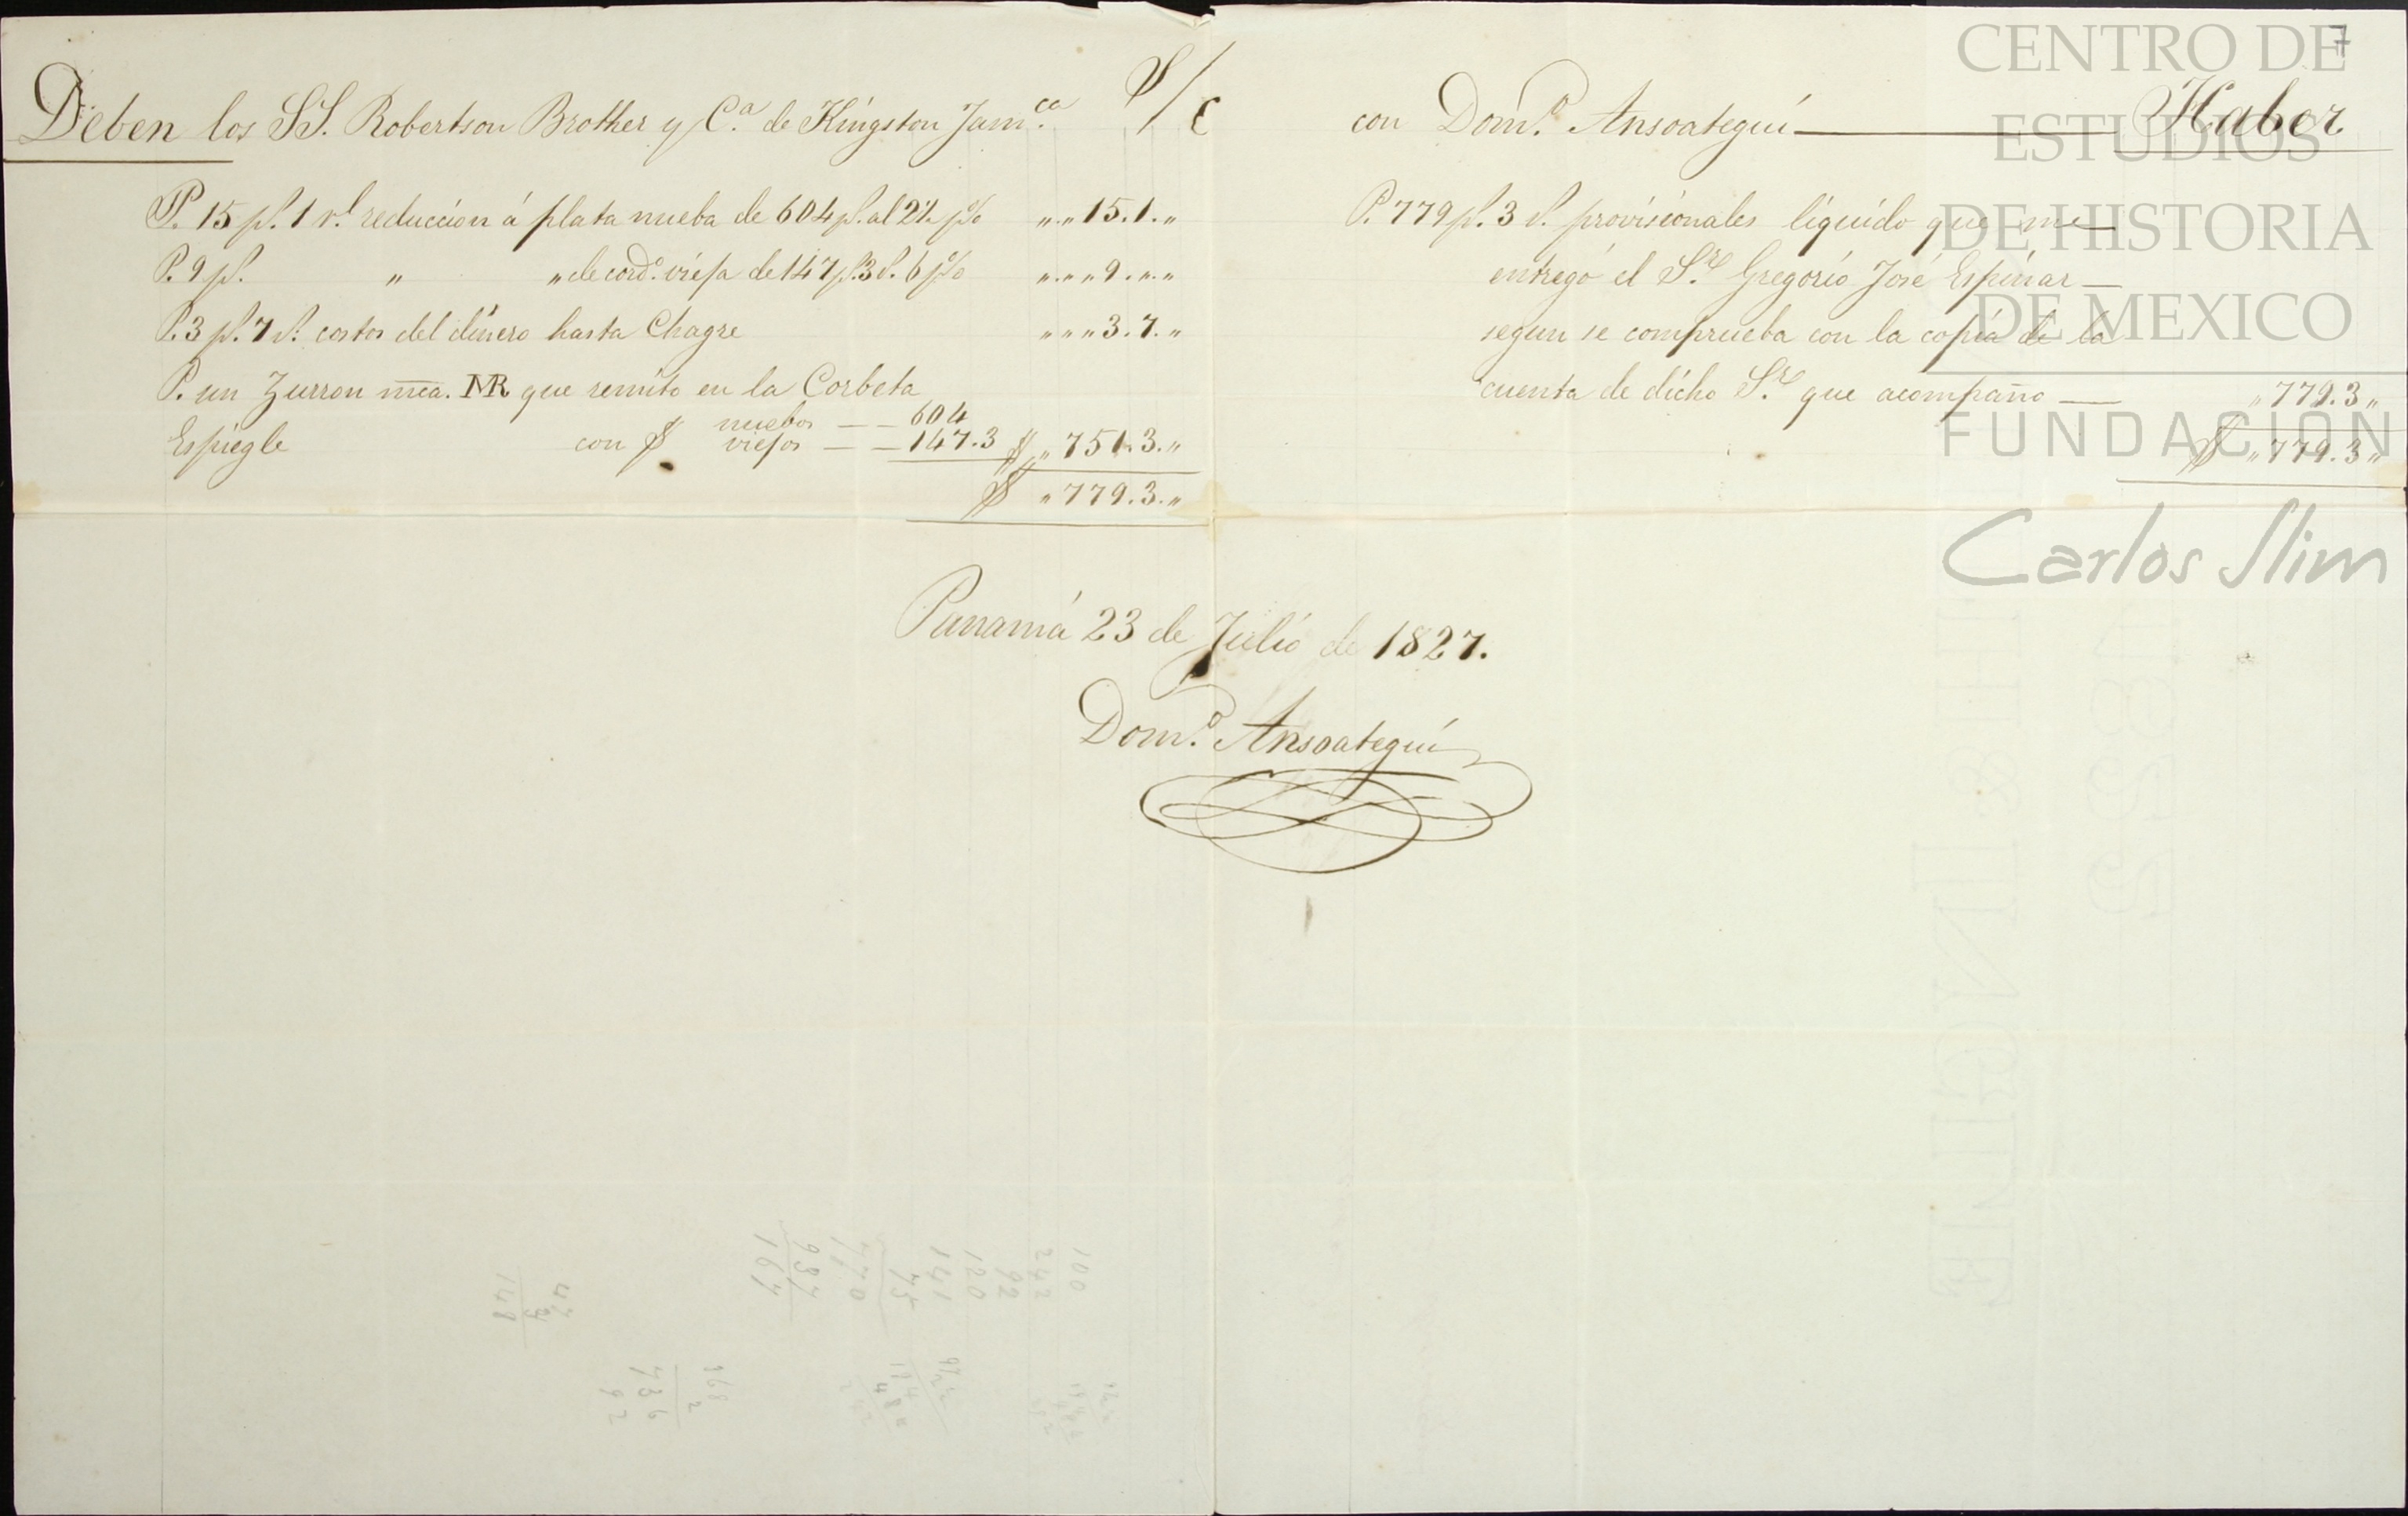 Deben los SS. Robertson Brother y C.a de Kingston Jam.ca S/c
P. 15 ps. 1 rl. reduccion á plata nueba de 604 ps. al 2½ p%  "." 15.1."
P. 9 ps. " " de cord.o viefa de 147 ps. 3 rs. 6 p%  "."." 9."."
P. 3 ps. 7 rs. costos del dinero hasta Chagre  " " " 3.7."
P. un Zurron mca. MR que remito en la Corbeta
nuebos — — 604
Espiegle con $ viejos — — 147.3 $ " 751.3."
$ " 779.3."
con Dom.o Ansoategui — Haber
P. 779 ps. 3 rs. provisionales liquido que me
entregó el S.re Gregorio José Espinar —
segun se comprueba con la copia de la
cuenta de dicho S.re que acompaño — " 779.3 "
$ " 779.3 "
Panamá 23 de Julio de 1827.
Dom.o Ansoategui
7
CENTRO DE
ESTUDIOS
DE HISTORIA
DE MEXICO
FUNDACIÓN
Carlos Slim
100
242
92
120
141
75
770
937
167
148
368
2
736
92